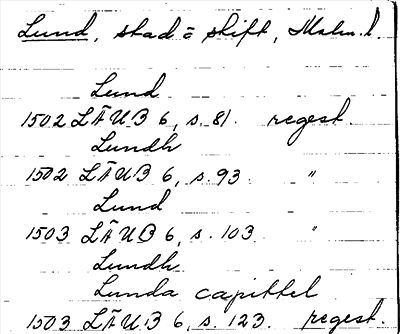 Lund, stad o stift, Malm. l.
Lund
1502 LÄUB 6, s. 81. regest.
Lundh
1502 LÄUB 6, s. 93. "
Lund
1503 LÄUB 6, s. 103 "
Lundh
Lunda capittel
1503 LÄUB 6, s. 123. regest.